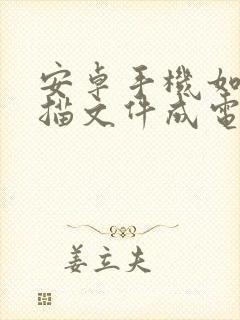 安卓手機如
描文件成電
姜立夫